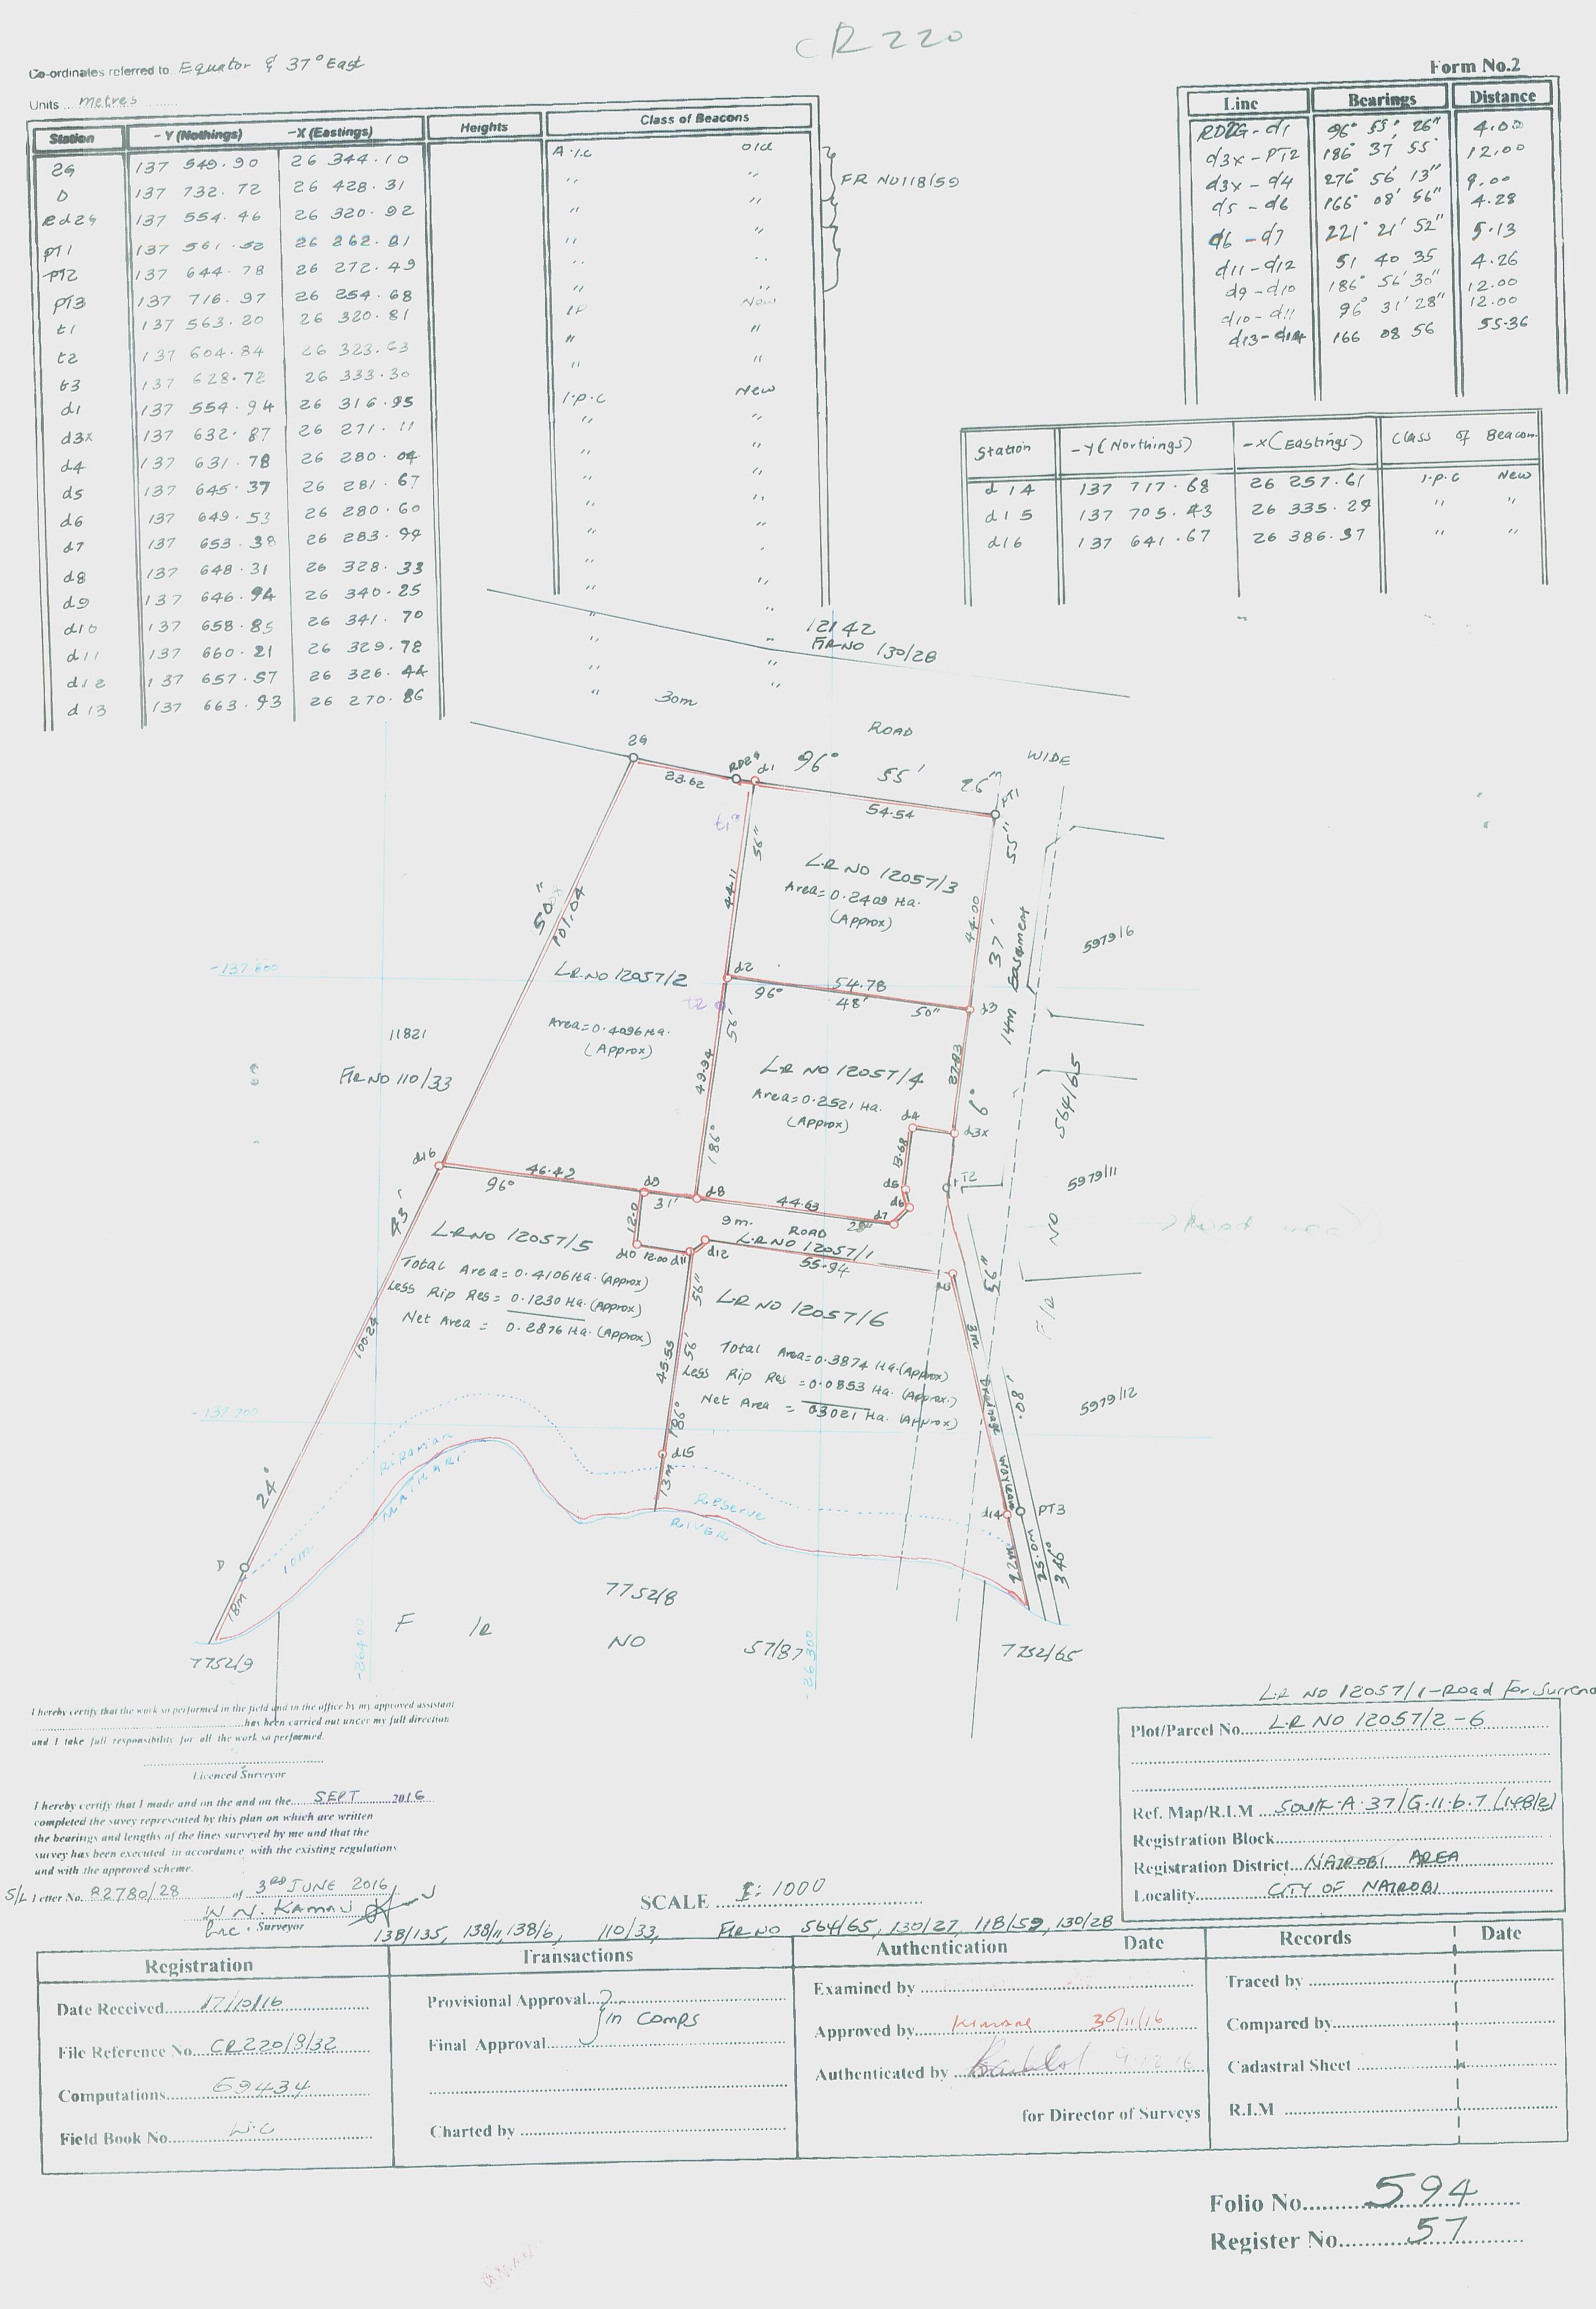 CR 220
Co-ordinates referred to. Equator & 37° East
Units ... metres
Form No.2
Station -Y (Nothings) -X (Eastings) Heights Class of Beacons
29 137 549.90 26 344.10 A.I.C old
D 137 732.72 26 428.31 " "
Rd29 137 554.46 26 320.92 " "
PT1 137 561.52 26 262.81 " "
PT2 137 644.78 26 272.49 " "
PT3 137 716.97 26 254.68 " "
FR No118/59
t1 137 563.20 26 320.81 IP New
t2 137 604.84 26 323.63 " "
t3 137 628.72 26 333.30 " "
d1 137 554.94 26 316.95 I.p.c New
d3x 137 632.87 26 271.11 " "
d4 137 631.78 26 280.04 " "
d5 137 645.37 26 281.67 " "
d6 137 649.53 26 280.60 " "
d7 137 653.38 26 283.99 " "
d8 137 648.31 26 328.33 " "
d9 137 646.94 26 340.25 " "
d10 137 658.85 26 341.70 " "
d11 137 660.21 26 329.78 " "
d12 137 657.57 26 326.44 " "
d13 137 663.93 26 270.86 " "
Line Bearings Distance
RD2G-d1 96° 55' 26" 4.00
d3x-PT2 186° 37 55 12.00
d3x-d4 276° 56' 13" 9.00
d5-d6 166° 08' 56" 4.28
d6-d7 221° 21' 52" 5.13
d11-d12 51 40 35 4.26
d9-d10 186° 56' 30" 12.00
d10-d11 96° 31' 28" 12.00
d13-d14 166 08 56 55.36
Station -Y (Northings) -X (Eastings) Class of Beacon
d14 137 717.68 26 257.61 I.p.c New
d15 137 705.43 26 335.29 " "
d16 137 641.67 26 386.37 " "
12142
F/R NO 130/28
30m ROAD WIDE
29 23.62 RD29 d1 96° 55' 26" PT1
54.54
t1
56" 44.11
L.R NO 12057/3
Area=0.2409 Ha.
(Approx)
44.00 37' 55"
14m Easement
5979/6
50" 101.04
-137 600
L.R NO 12057/2
Area=0.4096 Ha.
(Approx)
d2 54.78 d3
96° 48' 50"
t2
11821
F/R NO 110/33
56' 49.94 186°
L.R NO 12057/4
Area=0.2521 Ha.
(Approx)
27.83 6°
d4 d3x
13.68
d5 d6 d7 PT2
564/65
5979/11
F/R NO
d16 46.42 d9 d8 44.63
96° 31' 28"
43'
12.0
9m. ROAD
L.R NO 12057/1
55.94
d10 12.00 d11 d12
L.R NO 12057/5
Total Area=0.4106 Ha. (Approx)
Less Rip Res= 0.1230 Ha. (Approx)
Net Area = 0.2876 Ha. (Approx)
L.R NO 12057/6
Total Area=0.3874 Ha. (Approx)
Less Rip Res =0.0853 Ha. (Approx.)
Net Area = 03021 Ha. (Approx)
56" 56' 45.55 186°
100.24
3m Drainage Wayleave
56" 08'
5979/12
-137 700
Riparian
MATHARI
d15
13m
Reserve
RIVER
d14 PT3
12m 25.0m 346°
24°
D
10m
18m
7752/8
F/R NO 57/87
7752/9
7752/65
-26400
-26 300
I hereby certify that the work so performed in the field and in the office by my approved assistant
..........has been carried out under my full direction
and I take full responsibility for all the work so performed.
Licenced Surveyor
I hereby certify that I made and on the and on the.... SEPT ....2016
completed the suvey represented by this plan on which are written
the bearings and lengths of the lines surveyed by me and that the
survey has been executed in accordance with the existing regulations
and with the approved scheme.
S/L Letter No. R2780/28 of 3RD JUNE 2016
W N. KAMAU
Lnc. Surveyor
SCALE 1:1000
L.R NO 12057/1-Road For Surrend
Plot/Parcel No. L.R NO 12057/2-6
Ref. Map/R.I.M SOUTH.A.37/G.11.b.7 (148/2)
Registration Block
Registration District NAIROBI AREA
Locality CITY OF NAIROBI
138/135, 138/11, 138/6, 110/33, F/R NO 564/65, 130/27, 118/59, 130/28
Registration Transactions Authentication Date Records Date
Date Received 17/10/16
File Reference No. CR220/8/32
Computations 69434
Field Book No. W.C
Provisional Approval
in comps
Final Approval
Charted by
Examined by
Approved by Kimani 30/11/16
Authenticated by
for Director of Surveys
Traced by
Compared by
Cadastral Sheet
R.I.M
Folio No. 594
Register No. 57